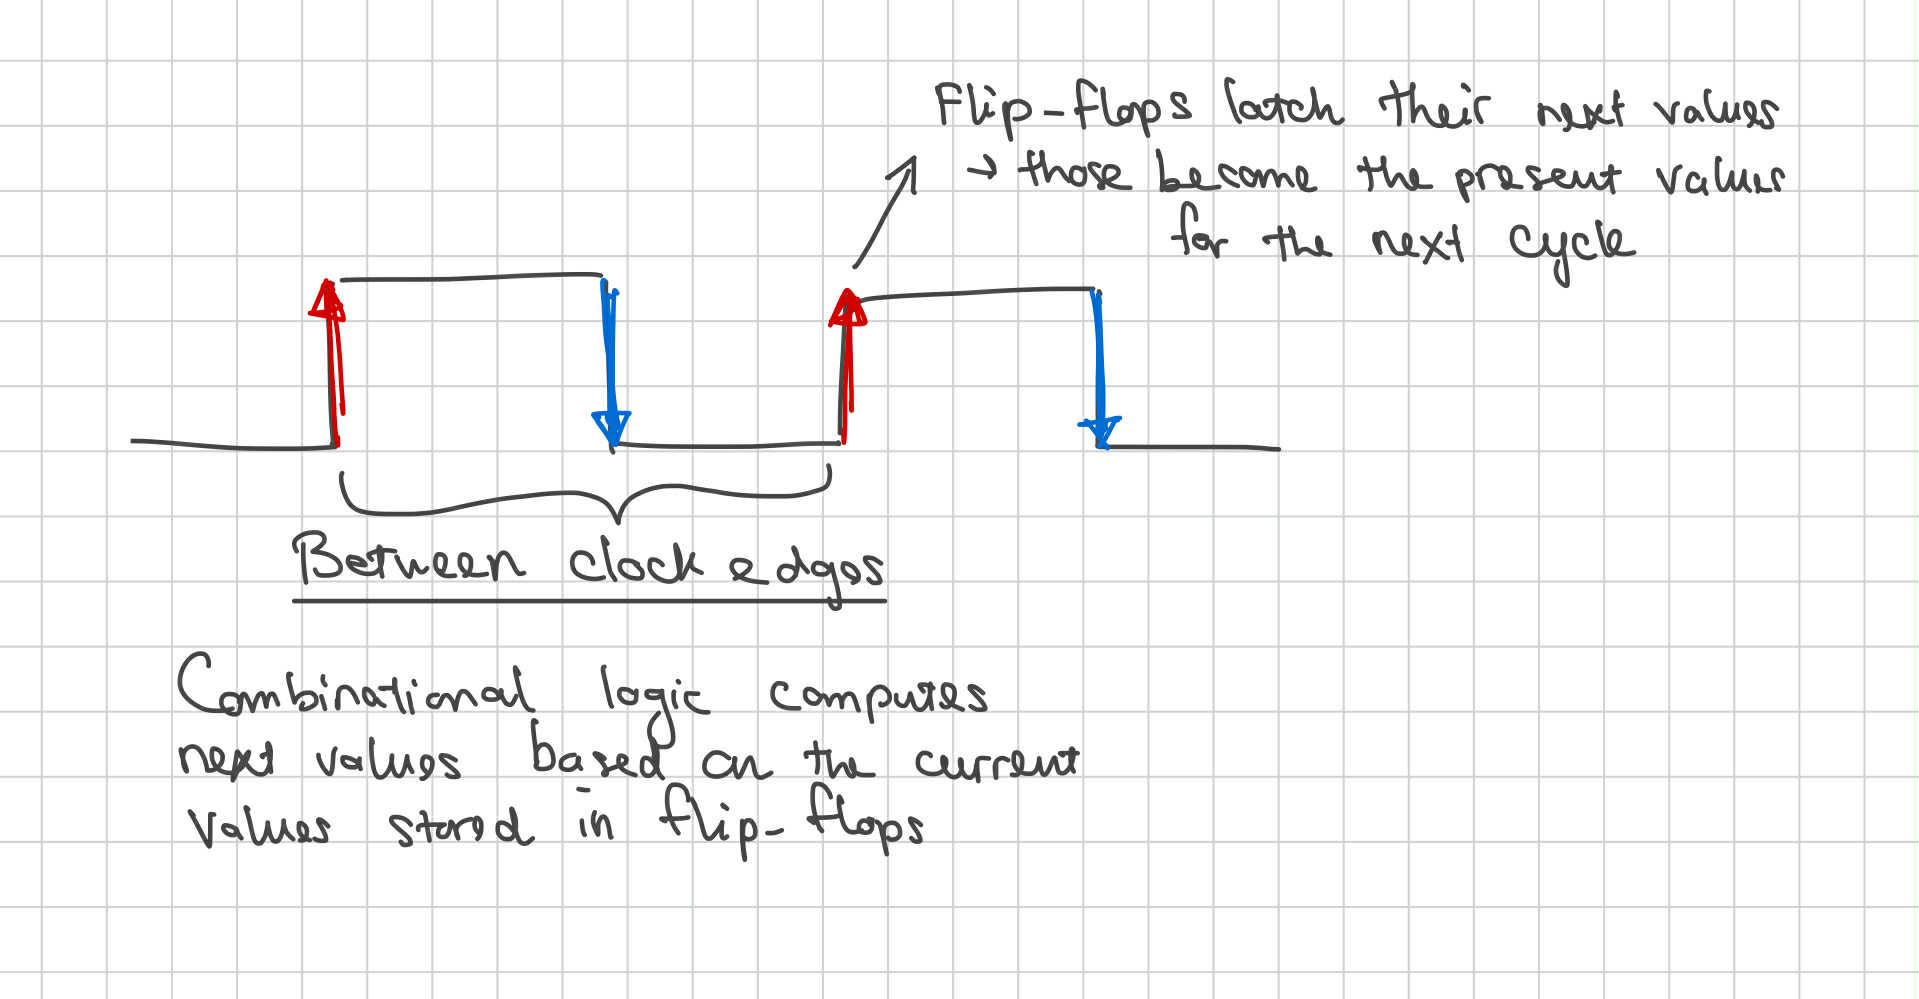 Flip-flops latch their next values
→ those become the present values
for the next cycle
Between clock edges
Combinational logic computes
next values based on the current
values stored in flip-flops